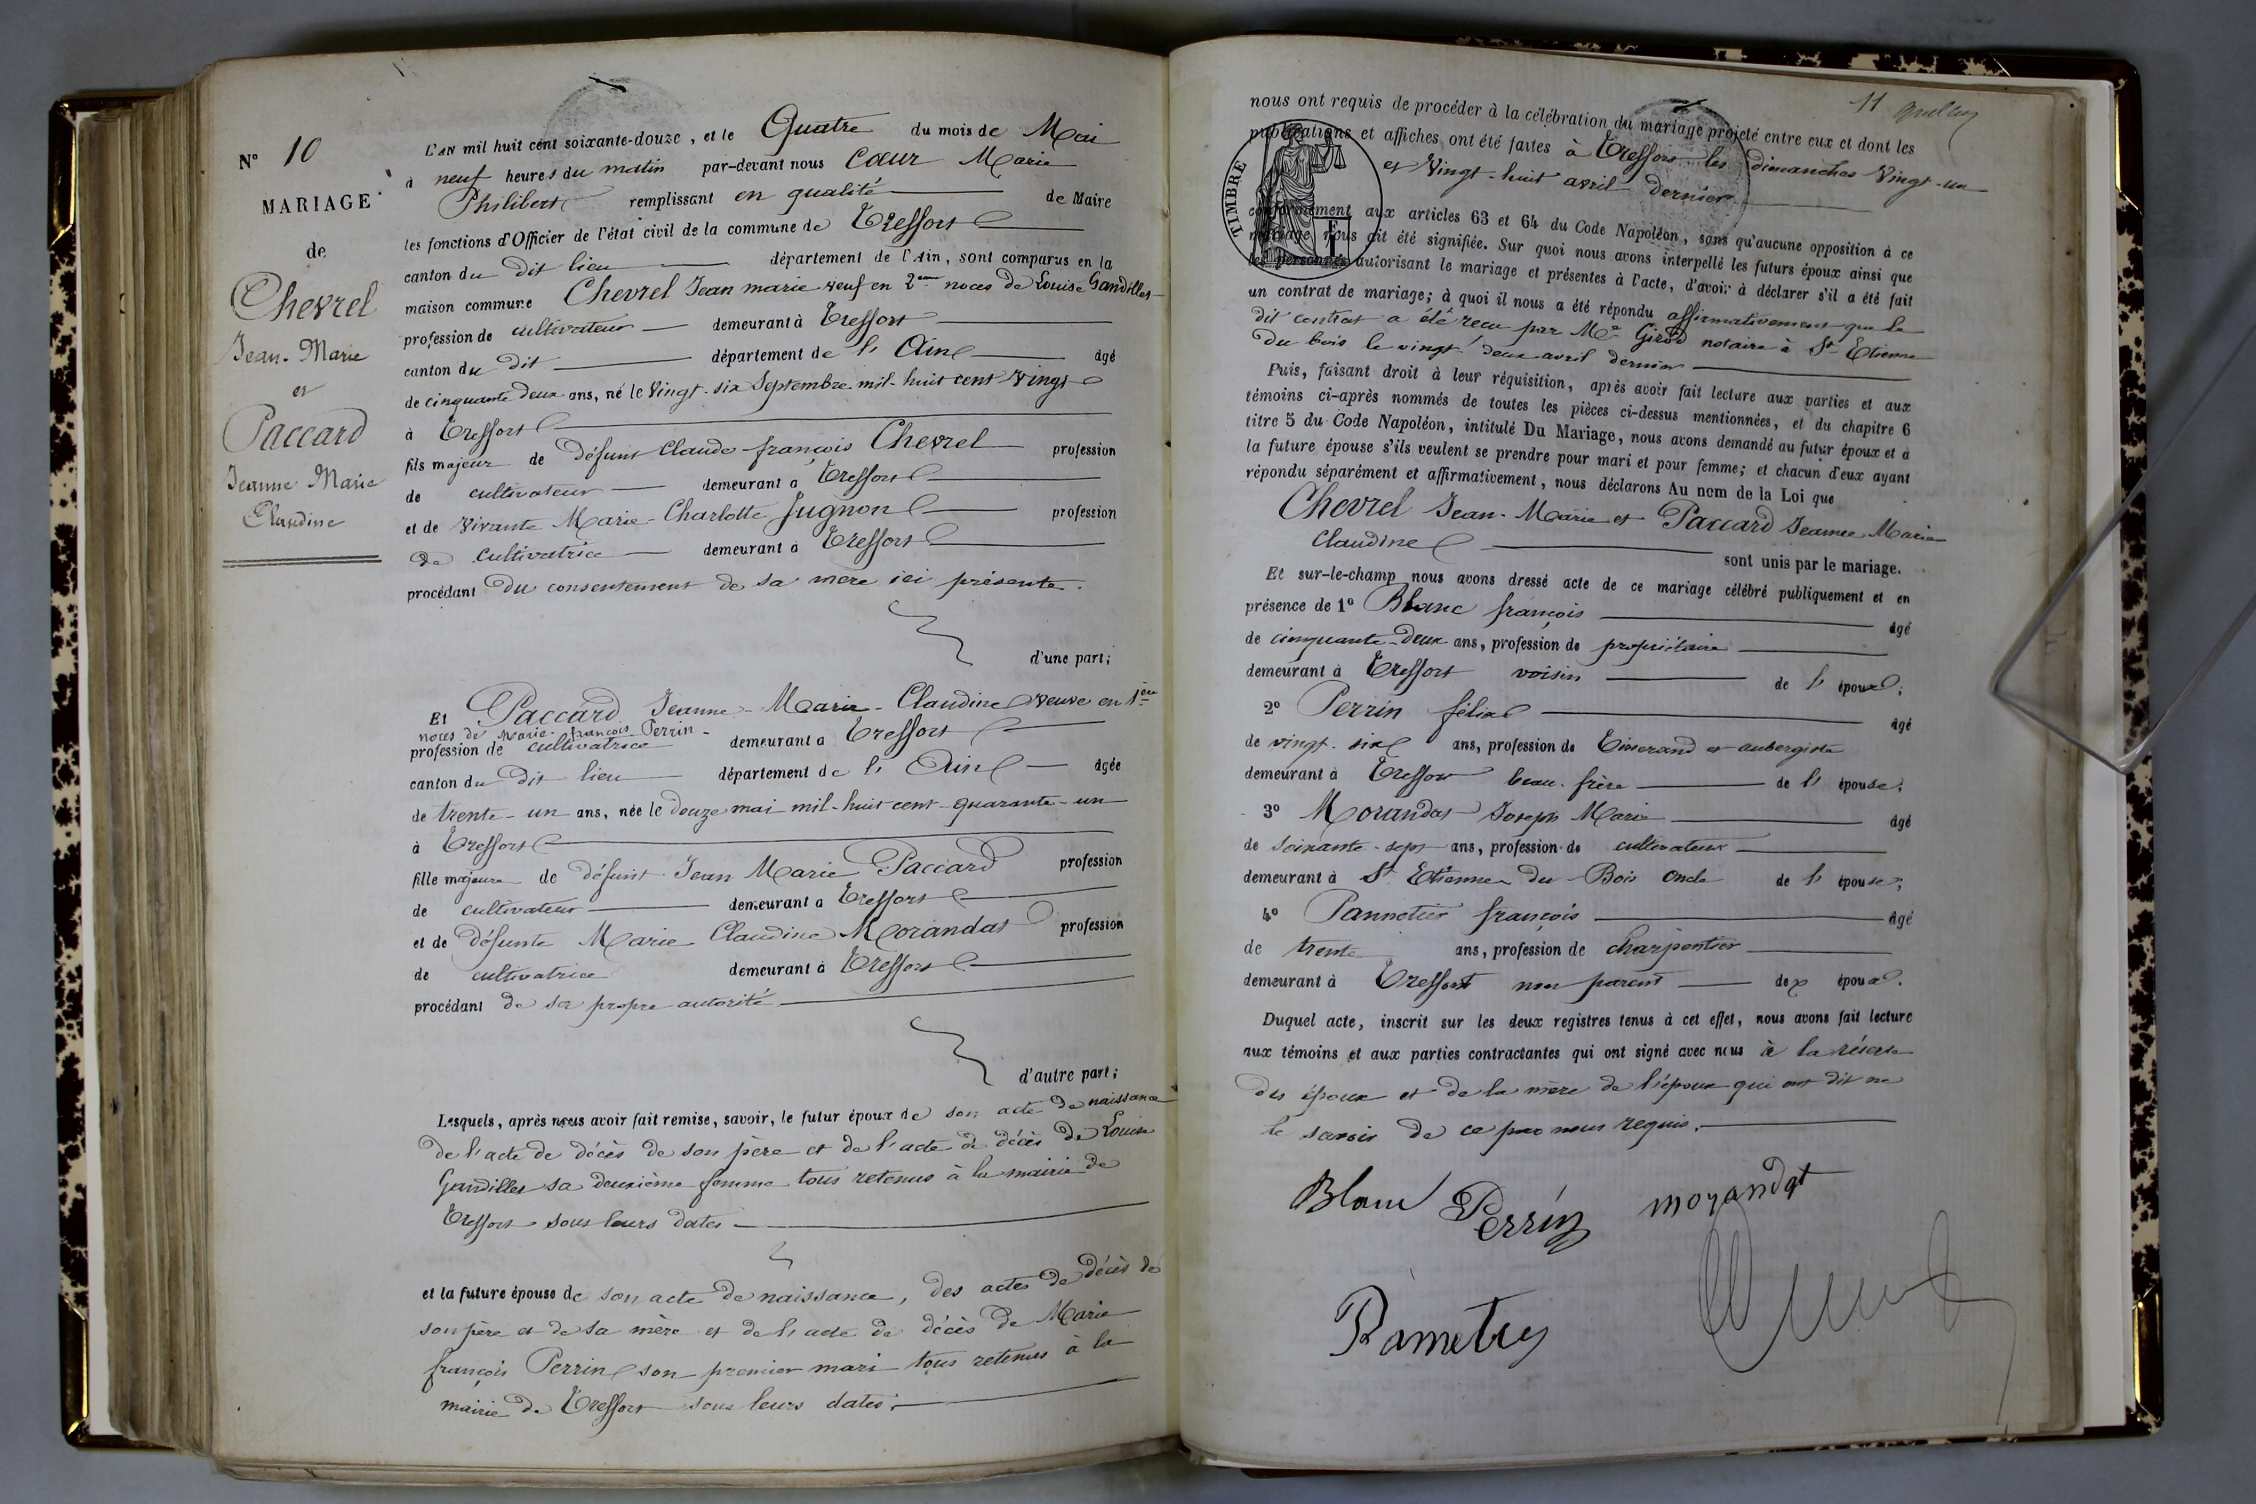 N° 10
MARIAGE
de
Chevrel
Jean-Marie
et
Paccard
Jeanne Marie
Claudine
L'AN mil huit cent soixante-douze, et le Quatre du mois de Mai
à neuf heures du matin par-devant nous Cœur Marie
Philibert remplissant en qualité de Maire
les fonctions d'Officier de l'état civil de la commune de Treffort
canton du dit lieu département de l'Ain, sont comparus en la
maison commune Chevrel Jean marie veuf en 2me noces de Louise Gandillet
profession de cultivateur demeurant à Treffort
canton du dit département de l'Ain âgé
de cinquante deux ans, né le Vingt-six Septembre mil-huit cent Vingt
à Treffort
fils majeur de défunt Claude françois Chevrel profession
de cultivateur demeurant à Treffort
et de vivante Marie-Charlotte Jugnon profession
de cultivatrice demeurant à Treffort
procédant du consentement de sa mere ici présente.
d'une part;
Et Paccard Jeanne-Marie-Claudine veuve en 1ère
noces de Marie-françois Perrin
profession de cultivatrice demeurant à Treffort
canton du dit lieu département de l'Ain âgée
de trente-un ans, née le douze mai mil-huit cent-quarante-un
à Treffort
fille majeure de défunt Jean Marie Paccard profession
de cultivateur demeurant à Treffort
et de défunte Marie Claudine Morandat profession
de cultivatrice demeurant à Treffort
procédant de sa propre autorité
d'autre part;
Lesquels, après nous avoir fait remise, savoir, le futur époux de son acte de naissance
de l'acte de décès de son père et de l'acte de décès de Louise
Gandillet sa deuxième femme tous retenus à la mairie de
Treffort sous leurs dates
et la future épouse de son acte de naissance, des actes de décès de
son père et de sa mère et de l'acte de décès de Marie
françois Perrin son premier mari tous retenus à la
mairie de Treffort sous leurs dates.
11
nous ont requis de procéder à la célébration du mariage projeté entre eux et dont les
publications et affiches ont été faites à Treffort les dimanches Vingt-un
et Vingt-huit avril dernier
TIMBRE
conformément aux articles 63 et 64 du Code Napoléon, sans qu'aucune opposition à ce
mariage nous ait été signifiée. Sur quoi nous avons interpellé les futurs époux ainsi que
les personnes autorisant le mariage et présentes à l'acte, d'avoir à déclarer s'il a été fait
un contrat de mariage; à quoi il nous a été répondu affirmativement que le
dit contrat a été reçu par Me Girod notaire à St Etienne
du bois le vingt-deux avril dernier
Puis, faisant droit à leur réquisition, après avoir fait lecture aux parties et aux
témoins ci-après nommés de toutes les pièces ci-dessus mentionnées, et du chapitre 6
titre 5 du Code Napoléon, intitulé Du Mariage, nous avons demandé au futur époux et à
la future épouse s'ils veulent se prendre pour mari et pour femme; et chacun d'eux ayant
répondu séparément et affirmativement, nous déclarons Au nom de la Loi que
Chevrel Jean-Marie et Paccard Jeanne Marie
Claudine
sont unis par le mariage.
Et sur-le-champ nous avons dressé acte de ce mariage célébré publiquement et en
présence de 1° Blanc françois âgé
de cinquante-deux ans, profession de propriétaire
demeurant à Treffort voisin de l'époux;
2° Perrin félix âgé
de vingt-six ans, profession de Tisserand et aubergiste
demeurant à Treffort beau-frère de l'épouse;
3° Morandat Joseph Marie âgé
de soixante-sept ans, profession de cultivateur
demeurant à St Etienne du Bois oncle de l'épouse;
4° Pannetier françois âgé
de trente ans, profession de charpentier
demeurant à Treffort non parent des époux.
Duquel acte, inscrit sur les deux registres tenus à cet effet, nous avons fait lecture
aux témoins et aux parties contractantes qui ont signé avec nous à la réserve
des époux et de la mère de l'époux qui ont dit ne
le savoir de ce par nous requis.
Blanc Perrin morandat